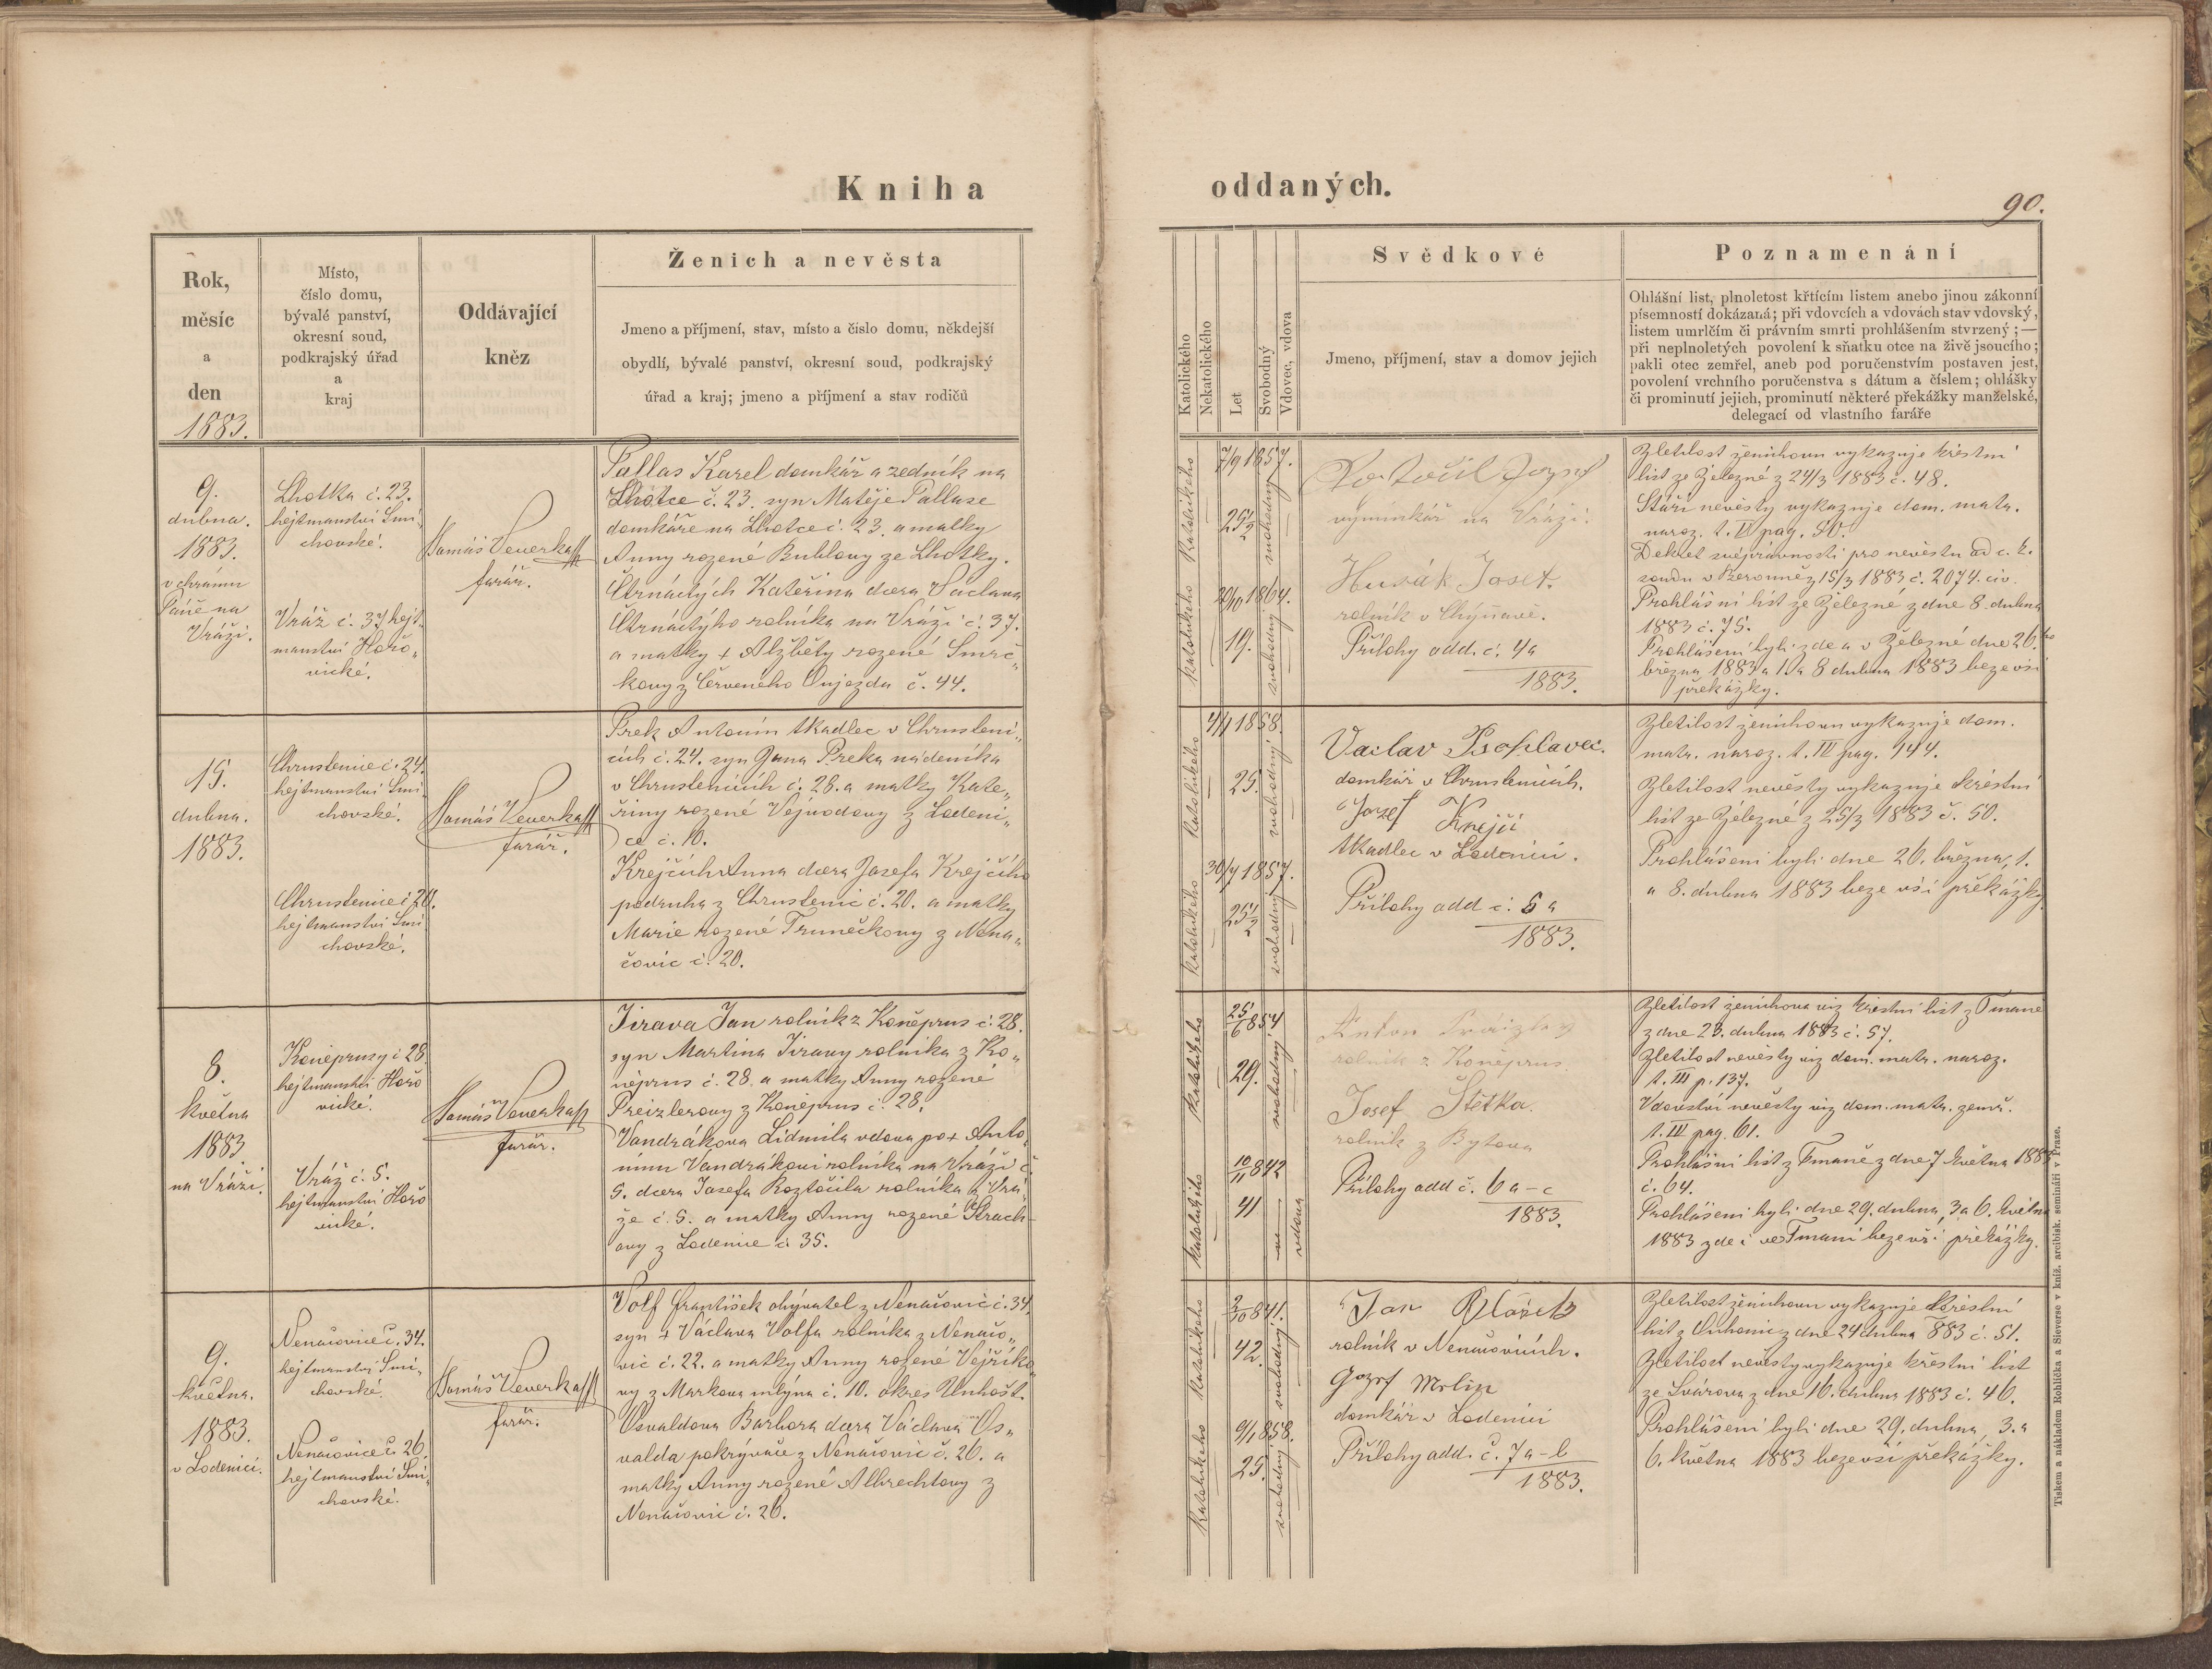 Kniha
oddaných.
90.
Rok,
měsíc
a
den
1883.
Místo,
číslo domu,
bývalé panství,
okresní soud,
podkrajský úřad
a
kraj
Oddávající
kněz
Ženich a nevěsta
Jmeno a příjmení, stav, místo a číslo domu, někdejší
obydlí, bývalé panství, okresní soud, podkrajský
úřad a kraj; jmeno a příjmení a stav rodičů
Katolického
Nekatolického
Let
Svobodný
Vdovec, vdova
Svědkové
Jmeno, příjmení, stav a domov jejich
Poznamenání
Ohlášní list, plnoletost křtícím listem anebo jinou zákonní
písemností dokázaná; při vdovcích a vdovách stav vdovský,
listem umrlčím či právním smrti prohlášením stvrzený; —
při neplnoletých povolení k sňatku otce na živě jsoucího;
pakli otec zemřel, aneb pod poručenstvím postaven jest,
povolení vrchního poručenstva s dátum a číslem; ohlášky
či prominutí jejich, prominutí některé překážky manželské,
delegací od vlastního faráře
9.
dubna.
1883.
v chrámu
Páně na
Vráži.
Lhotka č. 23.
hejtmanství Smi
chovské.
Vráž č. 37 hejt
manství Hořo„
vické.
Tomáš Veverka
farář.
Pallas Karel domkář a zedník na
Lhotce č. 23. syn Matěje Pallase
domkáře na Lhotce č. 23. a matky
Anny rozené Bublovy ze Lhotky.
Čtrnáctých Kateřina dcera Václava
Čtrnáctýho rolníka na Vráži č. 37.
a matky + Alžběty rozené Smrč„
kovy z Červeného Oujezdu č. 44.
Katolického
7/9 1857.
25 1/2
svobodný
Katolického
1864.
19.
svobodný
Roztočil Jozef
vyminkář na Vráži.
Husák Josef.
rolník v Chýňavě.
Přílohy add. č. 4a
1883.
Zletilost ženichovu vykazuje křestní
list ze Železné z 24/3 1883 č. 48.
Stáří nevěsty vykazuje dom. matr.
naroz. t. IV pag. 50.
Dekret svéprávnosti pro nevěstu ad c. k.
soudu v Berouně z 15/3 1883 č. 2074. civ.
Prohlášní list ze Železné z dne 8. dubna
1883 č. 75.
Prohlášeni byli zde a v Železné dne 26.
března 1883 a 1. a 8 dubna 1883 beze vší
překážky.
15.
dubna.
1883.
Chrustenice č. 24.
hejtmanství Smi
chovské.
Chrustenice č 20.
hejtmanství Smi
chovské.
Tomáš Veverka
farář.
Prek Antonín tkadlec v Chrusteni„
cích č. 24. syn Jana Preka nádeníka
v Chrustenicích č. 28. a matky Kate„
řiny rozené Vejvodovy z Lodeni„
ce č. 10.
Krejčích Anna dcera Josefa Krejčího
podruha z Chrustenic č. 20. a matky
Marie rozené Truněčkovy z Nena„
čovic č. 20.
Katolického
1858.
25.
svobodný
Katolického
30/7 1857.
25 1/2
svobodný
Vaclav Psohlavec.
domkář v Chrustenicích.
Jozef Krejčí
tkadlec v Lodenici.
Přílohy add č. 5a
1883.
Zletilost ženichovu vykazuje dom.
matr. naroz. t. IV pag. 144.
Zletilost nevěsty vykazuje křestní
list ze Železné z 25/3 1883 č. 50.
Prohlášeni byli dne 26. března, 1.
a 8. dubna 1883 beze vší překážky
8.
května
1883
na Vráži.
Koněprusy č 28
hejtmanství Hořo
vické.
Vráž č. 5.
hejtmanství Hořo
vické.
Tomáš Veverka
farář.
Jirava Jan rolník z Koněprus č. 28.
syn Martina Jiravy rolníka z Ko„
něprus č. 28. a matky Anny rozené
Preizlerovy z Koněprus č. 28.
Vandrákova Lidmila vdova po + Anto„
nínu Vandrákovi rolníka na Vráži č.
5. dcera Josefa Roztočila rolníka z Vrá„
že č. 5. a matky Anny rozené Strach
ovy z Lodenice č 35.
Katolického
25/6 854
29.
svobodný
Katolického
10/11 842
41
vdova
Anton Praizler
rolník z Koněprus
Josef Štětka.
rolník z Bytova
Přílohy add č. 6 a–c
1883.
Zletilost ženichova viz křestní list z Tmaně
z dne 23. dubna 1883 č. 57.
Zletilost nevěsty viz dom. matr. naroz.
t. III p. 137.
Vdovství nevěsty viz dom. matr. zemř.
t. III pag. 61.
Prohlášní list z Tmaně z dne 7 května 1883
č. 64.
Prohlášeni byli dne 29. dubna, 3 a 6. května
1883 zde i ve Tmani beze vší překážky.
9.
května.
1883.
v Lodenici.
Nenačovice č. 34.
hejtmanství Smi„
chovské.
Nenačovice č. 26.
hejtmanství Smi„
chovské.
Tomáš Veverka
farář.
Volf František obývatel z Nenačovic č. 34.
syn + Václava Volfa rolníka z Nenačo„
vic č. 22. a matky Anny rozené Vejříko
vy z Markova mlýna č. 10. okres Unhošt.
Osvaldova Barbora dcera Václava Os„
valda pokrývače z Nenačovic č. 26. a
matky Anny rozené Albrechtovy z
Nenačovic č. 26.
Katolického
841.
42.
svobodný
Katolického
9/1 858.
25.
svobodný
Jan Blážek
rolník v Nenačovicích.
Jozef Mrlin
domkář v Lodenici
Přílohy add. č. 7 a–b
1883.
Zletilost ženichovu vykazuje křestní
list z Ouhonic z dne 24 dubna 883 č. 51.
Zletilost nevěsty vykazuje křestní list
ze Svárova z dne 16. dubna 1883 č. 46.
Prohlášeni byli dne 29. dubna, 3. a
6. května 1883 beze vší překážky.
Tiskem a nákladem Rohlíčka a Sieverse v kníž. arcibisk. semináři v Praze.